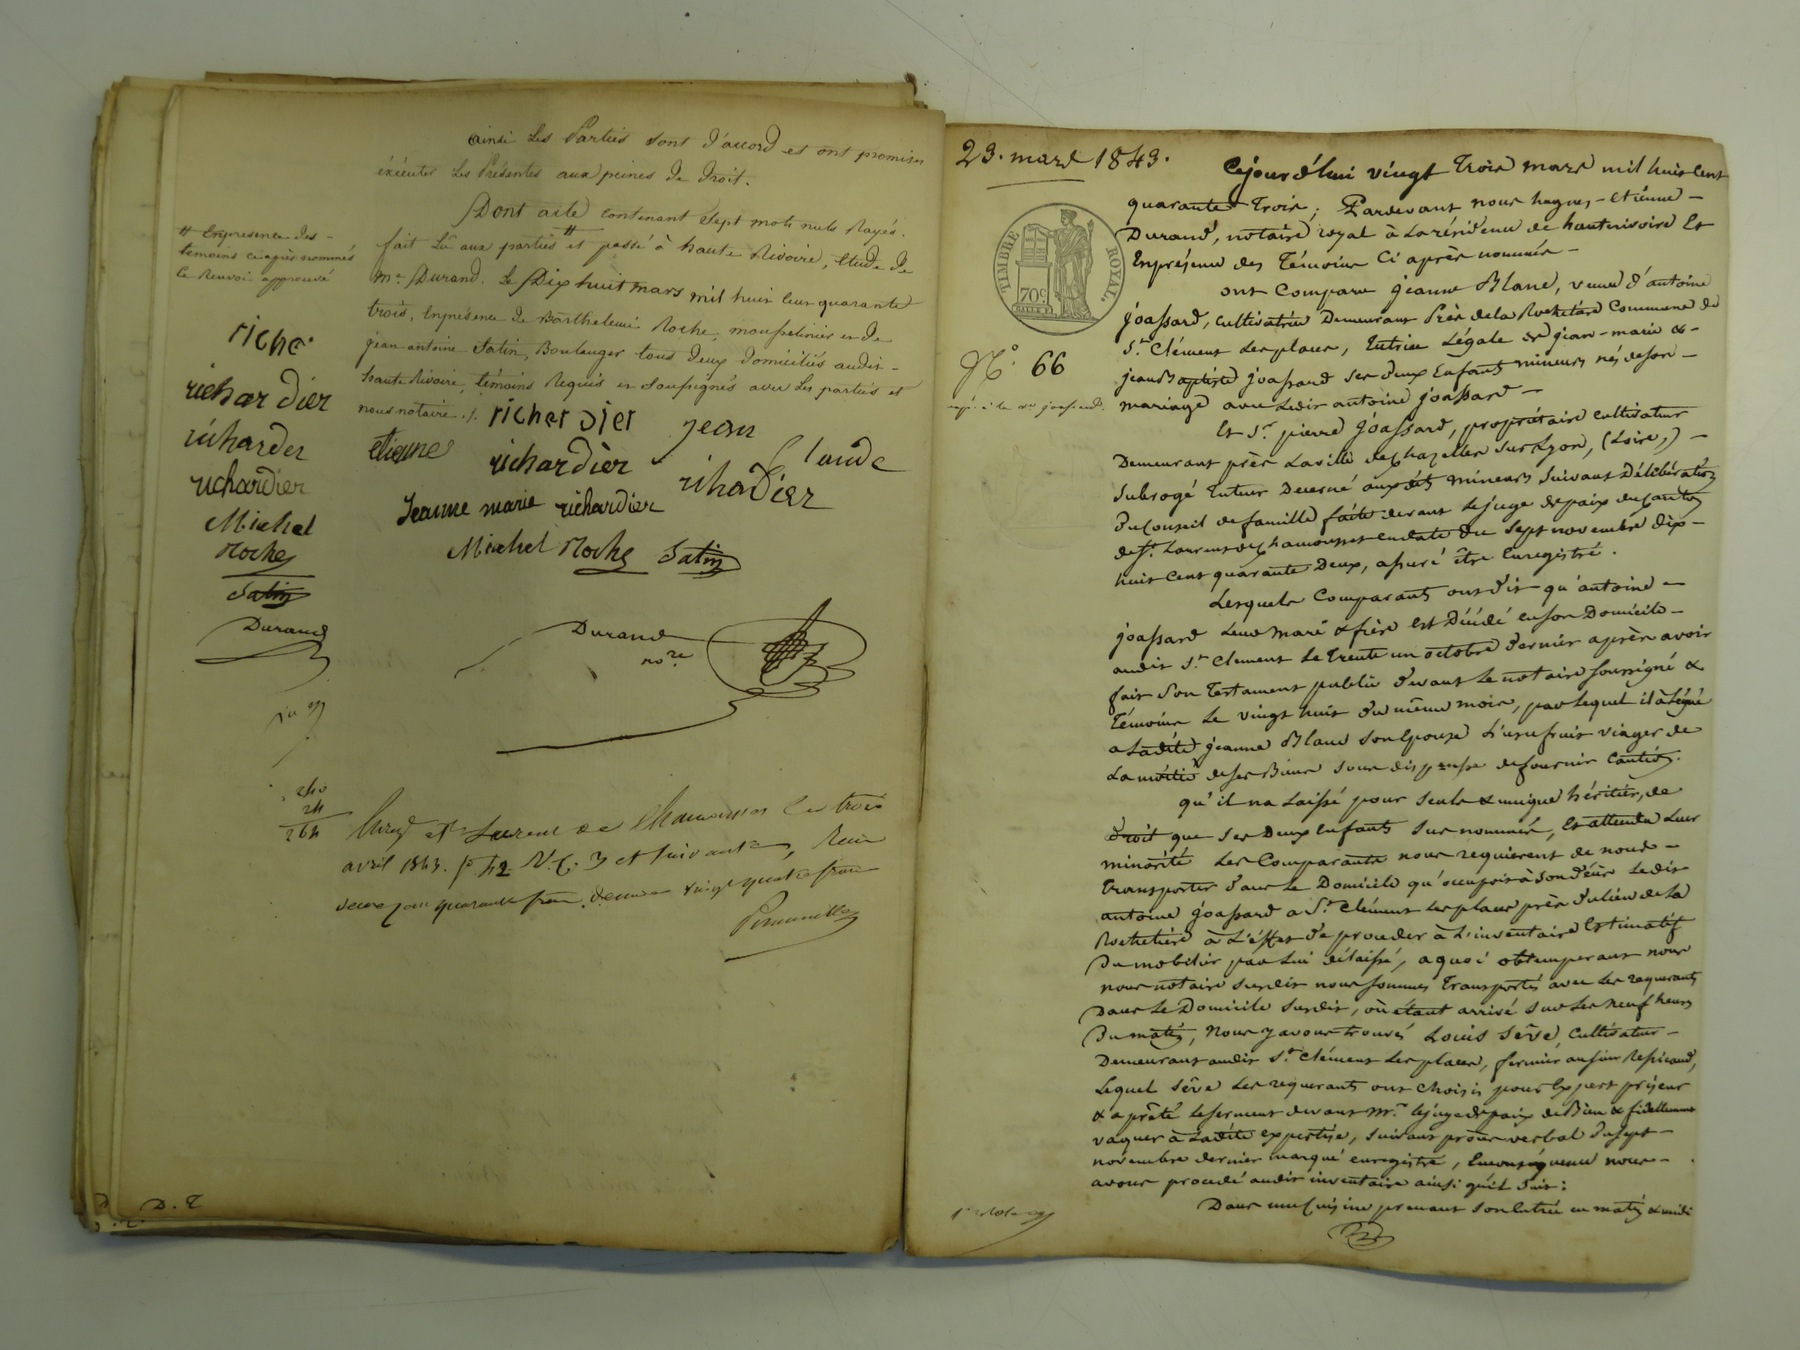 ainsi Les Parties sont d'accord et ont promises
éxécuter Les Présentes aux peines de Droit.
Dont acte contenant Sept mots nuls Rayés.
fait Lû aux parties # et passé à haute Rivoire, Etude de
Me Durand. Le Dix huit mars mil huit cent quarante
trois, En présence de Barthelemi Roche, mousselinier et de
jean antoine Satin, Boulanger tous deux domiciliés audit -
haute Rivoire, témoins Requis et Soussignés avec Les parties et
nous notaire ./.
# En présence des -
temoins ci après nommés
le Renvoi approuvé
riche
richardier
richarder
richardier
Michel
Roche
Satin
Durand
richerdier jean
etienne richardier Claude
richardier
Jeanne marie richardier
Michel Roche Satin
Durand
nore
240
24
264
Enreg. à St Laurent de Chamousset Le trois
avril 1843. fo 42 V. C. 3 et suivantes, Reçu
deux cent quarante francs, décime vingt quatre francs
D. T
23. mars 1843.
TIMBRE ROYAL
70c
No. 66
Cejourd'hui vingt Trois mars mil huit Cent
quarante Trois; Pardevant nous hugues-etiénne -
Durand, notaire royal à La résidence de hauterivoire Et
En présence des Témoins Ci après nommés -
ont Comparu jeanne Blanc, veuve d'antoine
joassard, cultivatrice Demeurant Près de la Rochetière Commune de
St Clément Les places, Tutrice Légale de jean-marie & -
jean Baptiste joassard ses deux Enfants mineurs nés de son -
mariage avec Ledit antoine joassard -
Et Sr pierre joassard, propriétaire cultivateur
Demeurant près La ville de Chazelles Sur Lyon, (Loire,) -
Subrogé Tuteur Décerné auxdits mineurs Suivant Délibération
du Conseil de famille faite devant Le juge de paix du Canton
de St Laurent de Chamousset en date du Sept novembre dix -
huit Cent quarante Deux, assuré être Enregistré.
Lesquels Comparants ont dit qu'antoine -
joassard Leur mari & frère est Décédé en son Domicile -
audit St Clement Le Trente un octobre dernier après avoir
fait Son Testament public devant Le notaire soussigné &
Témoins Le vingt huit du même mois, par Lequel il à Légué
a Ladite jeanne Blanc son Epouse L'usufruit viager de
La moitié de ses Biens sous dispense de fournir Caution.
qu'il na Laissé pour seuls & unique héritier, de
droit que Ses Deux Enfants Sus nommés, Et attendu Leur
minorité Les Comparants nous requierent de nous -
Transporter dans Le Domicile qu'occupoit à son décès Ledit
antoine joassard a St Clément Les places près du lieu de La
Rochetière à L'éffet de proceder à L'inventaire Estimatif
Du mobilier par Lui délaissé, a quoi obtemperant nous
nous notaire susdit nous sommes Transportés avec Les requerants
Dans Le Domicile susdit, où étant arrivé Sur Les neuf heures
du matin, Nous y avons trouvé Louis Sève, Cultivateur -
Demeurant audit St Clément Les places, fermier au sieur Repicaud,
Lequel Sève Les requerants ont choisi pour Expert priseur
& a prêté Le serment devant Mr Le juge de paix de Bien & fidellement
vaquer à Ladite expertise, Suivant procès verbal du Sept -
novembre dernier marqué enregistré, En conséquence nous -
avons procedé audit inventaire ainsi qu'il Suit:
Dans une Cuisine prenant Son Entrée en matin & midi